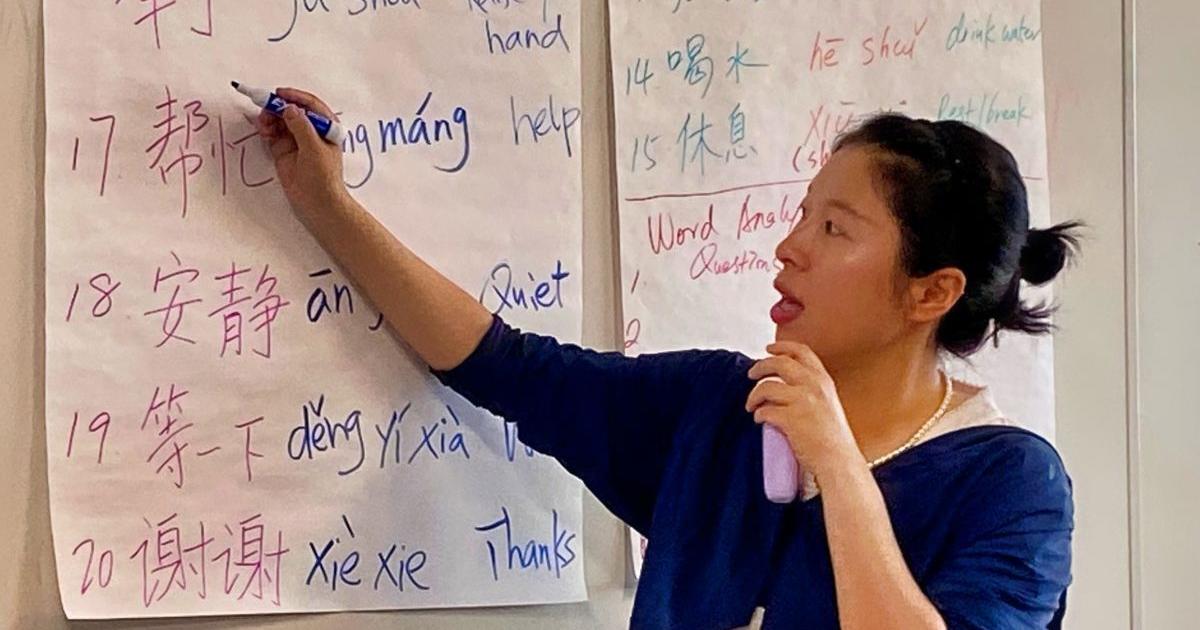 手 jǔ shǒu
hand
17 帮忙 ngmáng help
18 安静 ān Quiet
19 等一下 děng yí xià
20 谢谢 xiè xie Thanks
14. 喝水 hē shuǐ drink water
15 休息 xiū Rest/break
Word
Question
1
2